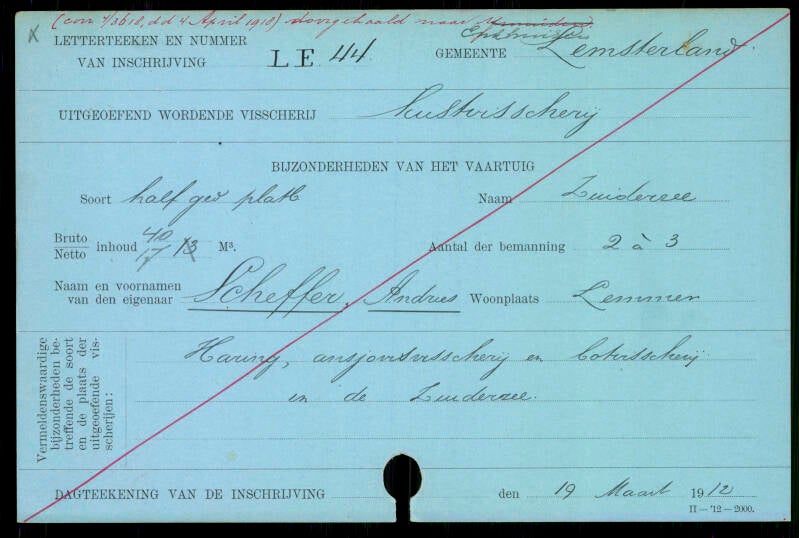 (con 4/3618, d.d 4 April 1918) doorgehaald naar
x LETTERTEEKEN EN NUMMER VAN INSCHRIJVING LE 44 GEMEENTE Lemsterland.
UITGEOEFEND WORDENDE VISSCHERIJ kustvisscherij
BIJZONDERHEDEN VAN HET VAARTUIG
Soort half ged plat Naam Zuiderzee
Bruto/Netto inhoud 40/17 13 M³. Aantal der bemanning 2 à 3
Naam en voornamen van den eigenaar Scheffer, Andries Woonplaats Lemmer
Vermeldenswaardige
bijzonderheden be-
treffende de soort
en de plaats der
uitgeoefende vis-
scherijen:
Haring, ansjovisvisscherij en botvisscherij
in de Zuiderzee.
DAGTEEKENING VAN DE INSCHRIJVING den 19 Maart 1912
II—'12—2000.